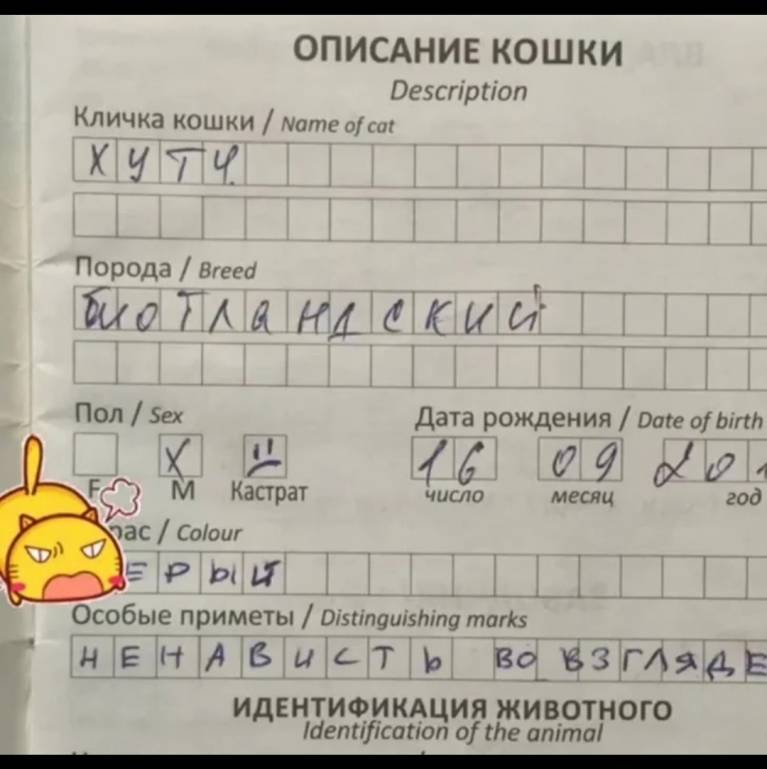 ОПИСАНИЕ КОШКИ
Description
Кличка кошки / Name of cat
ХУТЧ
Порода / Breed
биотландский
Пол / Sex
Дата рождения / Date of birth
X
16 09 20
F М Кастрат
число месяц год
рас / Colour
ЕРЫЙ
Особые приметы / Distinguishing marks
НЕНАВИСТЬ ВО ВЗГЛЯДЕ
ИДЕНТИФИКАЦИЯ ЖИВОТНОГО
Identification of the animal